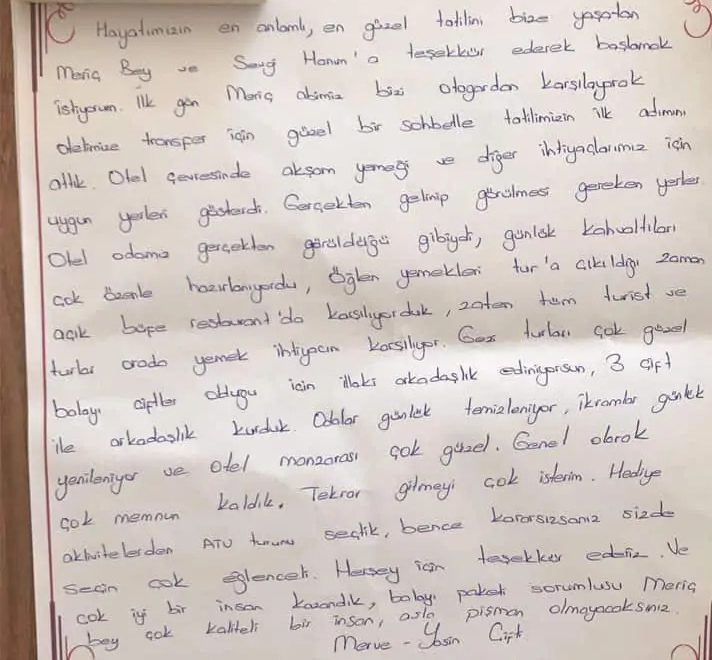 Hayatımızın en anlamlı, en güzel tatilini bize yaşatan
Meriç Bey ve Sevgi Hanım'a teşekkür ederek başlamak
istiyorum. İlk gün Meriç abimiz bizi otogardan karşılayarak
otelimize transfer için güzel bir sohbetle tatilimizin ilk adımını
attık. Otel çevresinde akşam yemeği ve diğer ihtiyaçlarımız için
uygun yerleri gösterdi. Gerçekten gelinip görülmesi gereken yerler.
Otel odamız gerçekten görüldüğü gibiydi, günlük kahvaltıları
çok özenle hazırlanıyordu, Öğlen yemekleri tur'a çıkıldığı zaman
açık büfe restaurant'da karşılıyorduk, zaten tüm turist ve
turlar orada yemek ihtiyacın karşılıyor. Gezi turları çok güzel
balayı çiftler olduğu için illaki arkadaşlık ediniyorsun, 3 çift
ile arkadaşlık kurduk. Odalar günlük temizleniyor, ikramlar günlük
yenileniyor ve otel manzarası çok güzel. Genel olarak
çok memnun kaldık. Tekrar gitmeyi çok isterim. Hediye
aktivitelerden ATV turunu seçtik, bence kararsızsanız sizde
seçin çok eğlenceli. Herşey için teşekkür ederiz. Ve
çok iyi bir insan kazandık, balayı paketi sorumlusu Meriç
bey çok kaliteli bir insan, asla pişman olmayacaksınız.
Merve - Yasin Çift